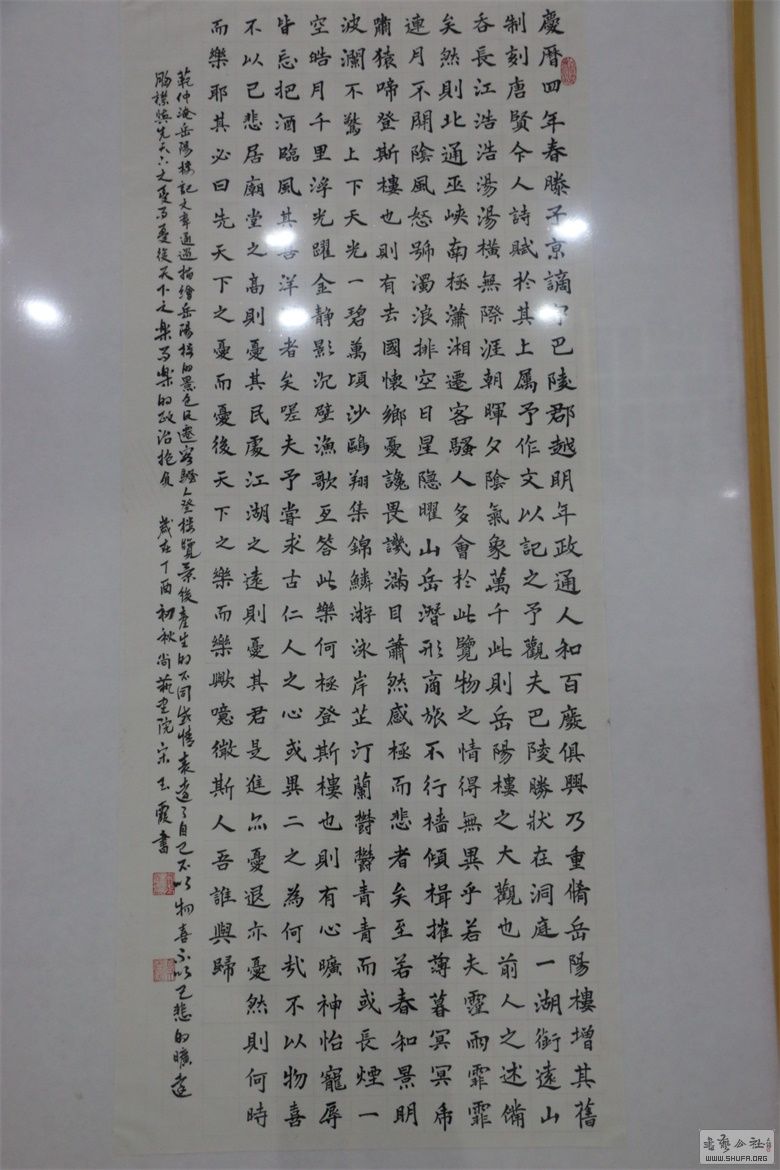 慶曆四年春滕子京謫守巴陵郡越明年政通人和百廢俱興乃重脩岳陽樓增其舊
制刻唐賢今人詩賦於其上属予作文以記之予觀夫巴陵勝狀在洞庭一湖銜遠山
吞長江浩浩湯湯橫無際涯朝暉夕陰氣象萬千此則岳陽樓之大觀也前人之述備
矣然則北通巫峽南極瀟湘遷客騷人多會於此覽物之情得無異乎若夫霪雨霏霏
連月不開陰風怒號濁浪排空日星隱曜山岳潛形商旅不行檣傾楫摧薄暮冥冥虎
嘯猿啼登斯樓也則有去國懷鄉憂讒畏譏滿目蕭然感極而悲者矣至若春和景明
波瀾不驚上下天光一碧萬頃沙鷗翔集錦鱗游泳岸芷汀蘭鬱鬱青青而或長煙一
空皓月千里浮光躍金静影沉璧漁歌互答此樂何極登斯樓也則有心曠神怡寵辱
皆忘把酒臨風其喜洋者矣嗟夫予嘗求古仁人之心或異二之為何哉不以物喜
不以己悲居廟堂之高則憂其民處江湖之遠則憂其君是進亦憂退亦憂然則何時
而樂耶其必曰先天下之憂而憂後天下之樂而樂歟噫微斯人吾誰與歸
範仲淹岳陽樓記文章通過描繪岳陽樓的景色及遷客騷人登樓覽景後產生的不同感情表達了自己不以物喜不以己悲的曠達
胸襟與先天下之憂而憂後天下之樂而樂的政治抱負 歲在丁酉初秋尚藝畫院宋玉霞書
書藝公社
WWW.SHUFA.ORG